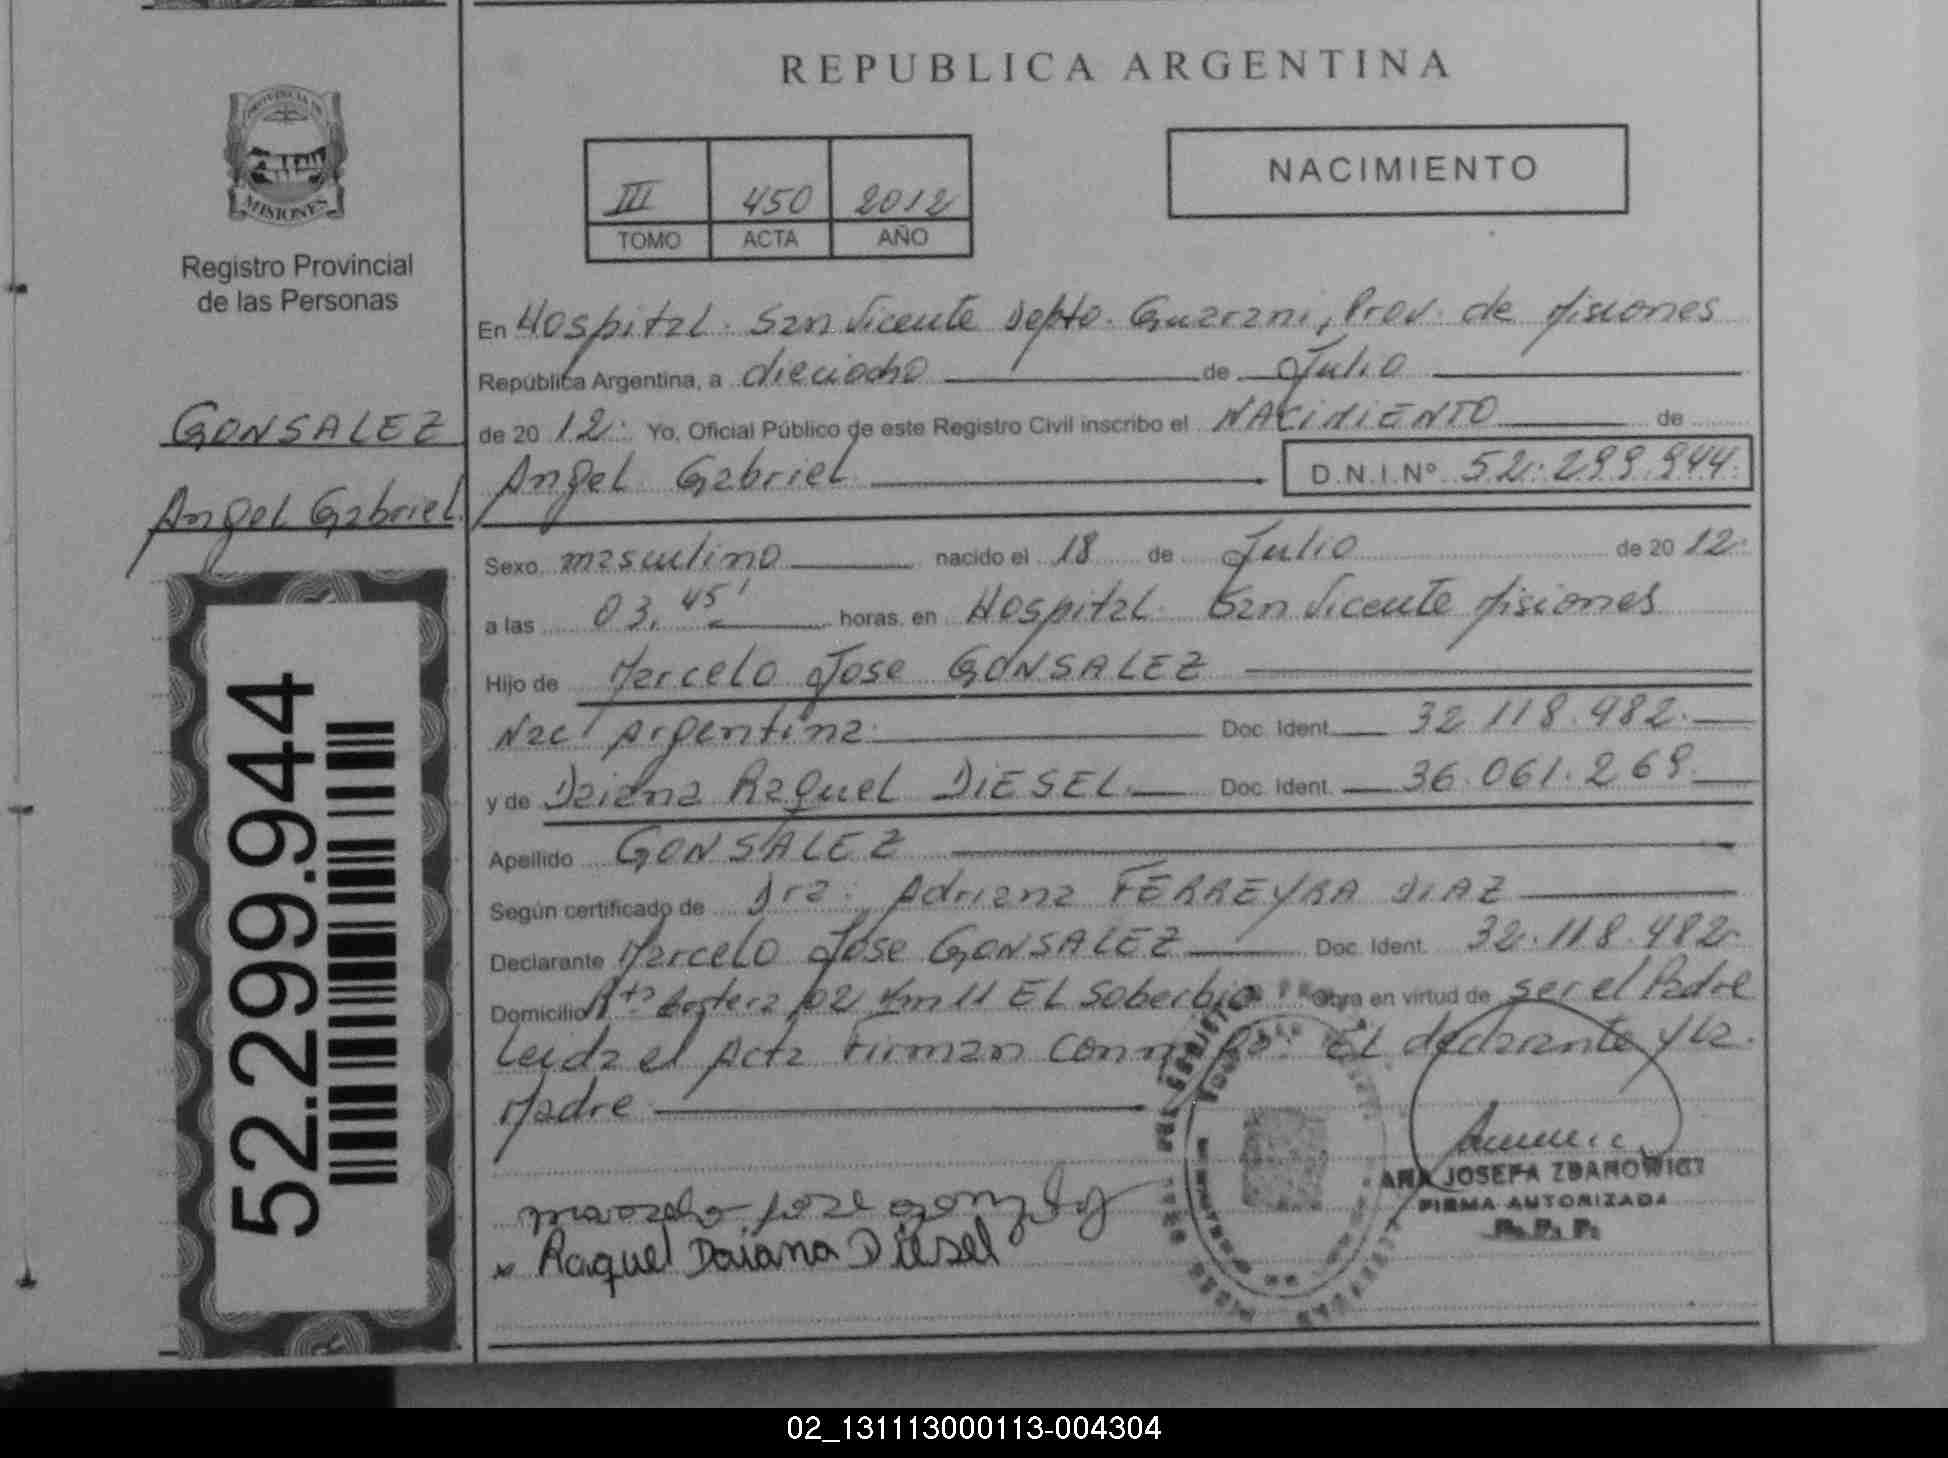 REPUBLICA ARGENTINA
III 450 2012
TOMO ACTA AÑO
NACIMIENTO
PROVINCIA DE
MISIONES
Registro Provincial
de las Personas
GONSALEZ
Angel Gabriel
52.299.944
En Hospital San Vicente Depto. Guarani, Prov. de Misiones
República Argentina, a dieciocho de Julio
de 20 12. Yo, Oficial Público de este Registro Civil inscribo el NACIMIENTO de
Angel Gabriel D.N.I.Nº 52.299.944.
Sexo masculino nacido el 18 de Julio de 20 12.
a las 03,45' horas en Hospital San Vicente Misiones
Hijo de Marcelo Jose GONSALEZ
Nac Argentina. Doc. Ident. 32.118.982.
y de Daiana Raquel DIESEL Doc. Ident. 36.061.269.
Apellido GONSALEZ
Según certificado de Dra. Adriana FERREYRA DIAZ
Declarante Marcelo Jose GONSALEZ Doc. Ident. 32.118.482.
Domicilio Rta Costera 02 Km 11 EL Soberbio Obra en virtud de ser el Padre
Leida el Acta Firman El declarante y la
Madre
Raquel Daiana Diesel
ANA JOSEFA ZDANOWICZ
FIRMA AUTORIZADA
R. P. P.
02_131113000113-004304